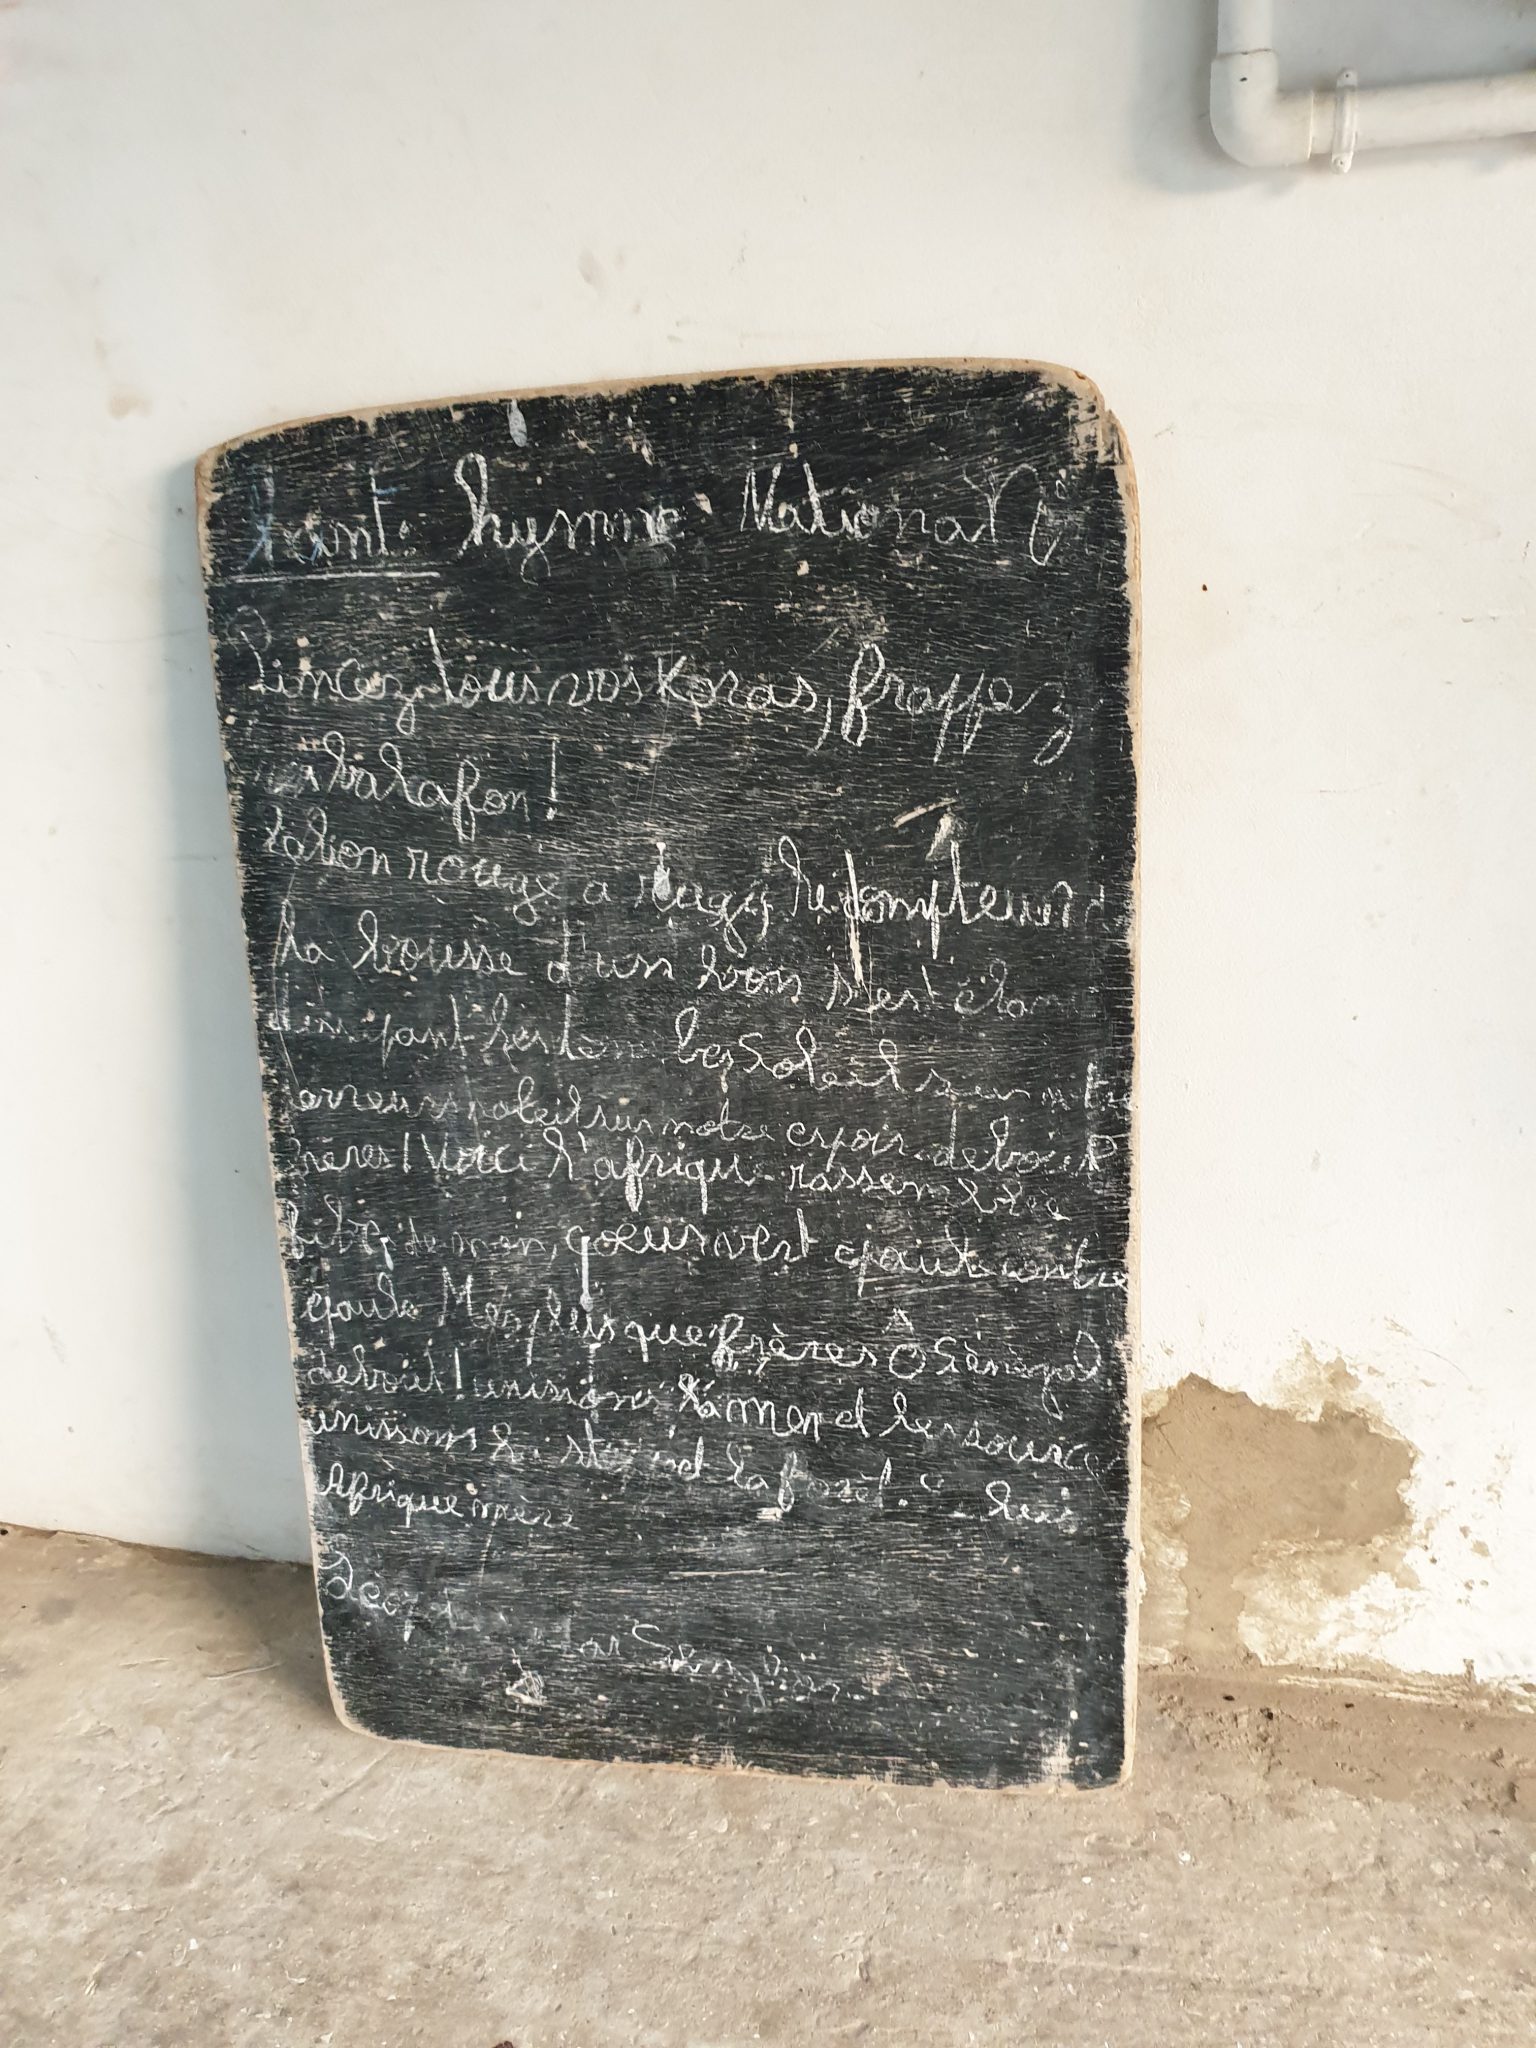 Chant: hymne National
Pincez tous vos Koras, frappez
les balafon!
le lion rouge a rugi, le dompteur d
la brousse d'un bon s'est élan
dissipant les ténèbres Soleil sur notre
erreurs soleil sur notre espoir. debout
frères! Voici l'afrique rassemblée
fibre de mon, coeur vert épaule contre
épaule Mes plus que frères Ô Sénégal
debout! unissons la mer et les sources
unissons la steppe et la forêt.
Afrique mère
Léopold Senghor